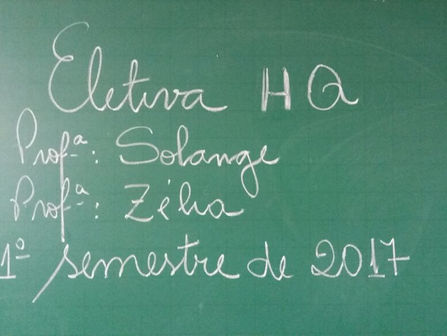 Eletiva HQ
Profª: Solange
Profª: Zélia
1º semestre de 2017